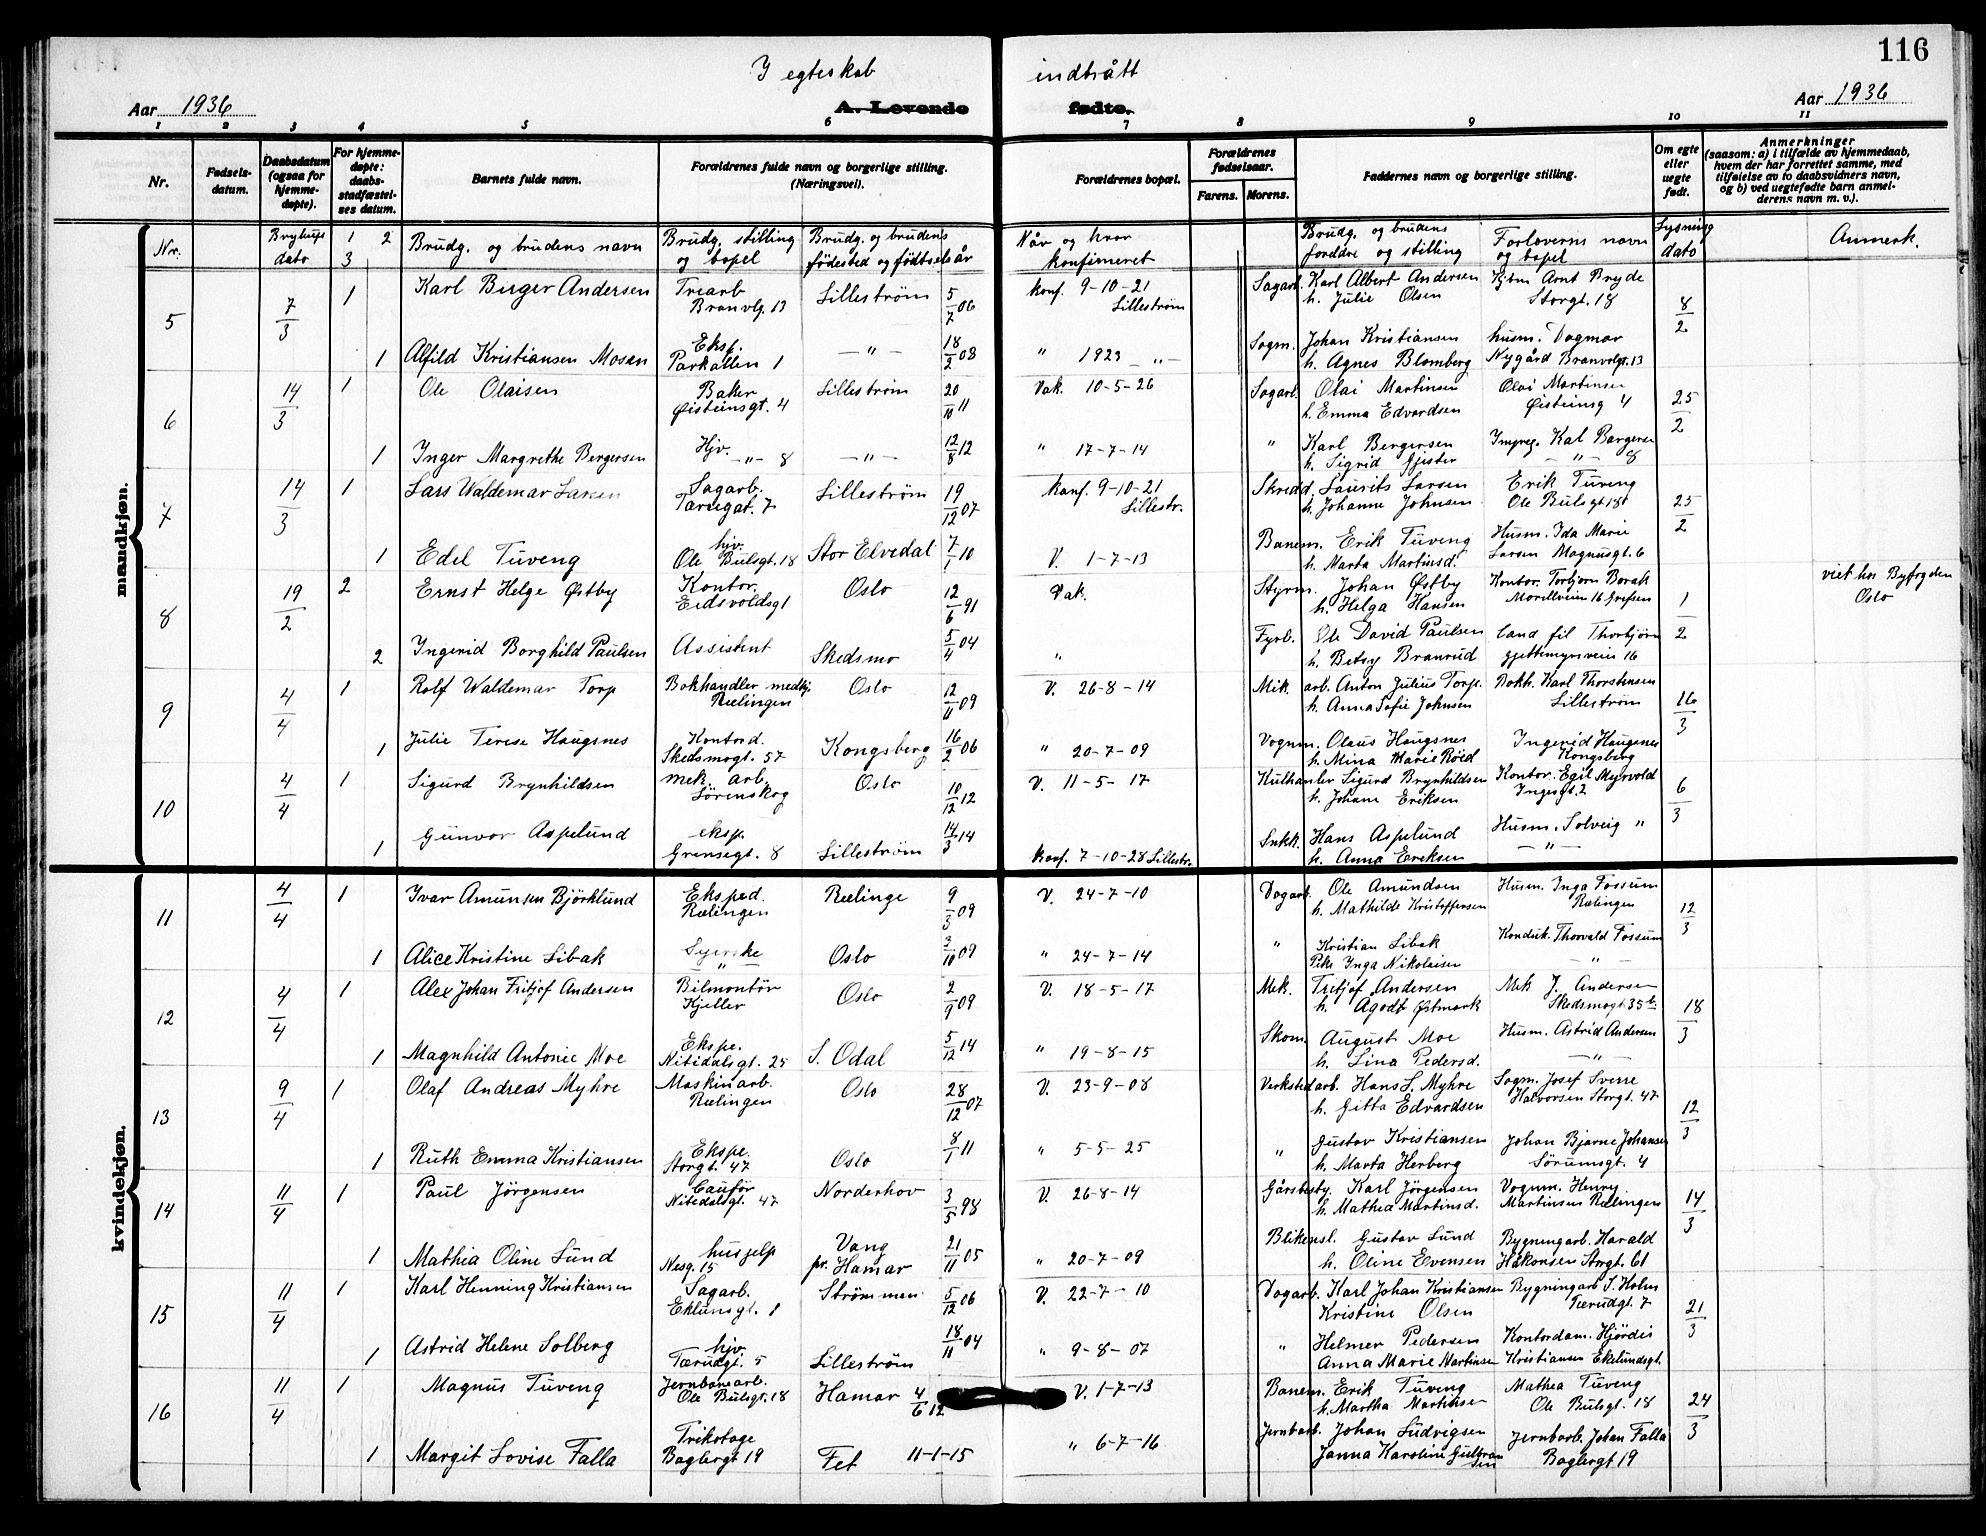 116
I egteskab indtrått
Aar 1936 A. Levende fødte. Aar 1936
1 2 3 4 5 6 7 8 9 10 11
Nr.
Fødsels-
datum.
Daabsdatum
(ogsaa for
hjemme-
døpte).
For hjemme-
døpte:
daabs-
stadfæstel-
ses datum.
Barnets fulde navn.
Forældrenes fulde navn og borgerlige stilling.
(Næringsvei.)
Forældrenes bopæl.
Forældrenes
fødselsaar.
Farens. Morens.
Faddernes navn og borgerlige stilling.
Om egte
eller
uegte
født.
Anmerkninger
(saasom: a) i tilfælde av hjemmedaab,
hvem der har forrettet samme, med
tilføielse av to daabsvidners navn,
og b) ved uegtefødte barn anmel-
derens navn m. v.).
mandkjøn.
kvindekjøn.
Nr. Bryllups dato 1 2 3 Brudg. og brudens navn Brudg. stilling og bopel Brudg. og brudens fødested og fødtsels år Når og hvor konfimeret Brudg. og brudens foreldre og stilling Forloverns navn og bopel Lysning dato Anmerk.
5 7/3 1 Karl Birger Andersen Trearb Branvlg. 13 Lillestrøm 5/7 06 konf. 9-10-21 Lillestrøm Sagarb. Karl Albert Andersen h. Julie Olsen Arnt Bryde Storgt. 18 8/2
1 Alfild Kristiansen Mosan Eksp. Parkallen 1 —"— 18/2 08 " 1923 —"— Sagm. Johan Kristiansen h. Agnes Blomberg husm. Dagmar Nygård Branvlgt. 13
6 14/3 1 Ole Olaisen Baker Øisteinsgt. 4 Lillestrøm 20/10 11 Vak. 10-5-26 Sagarb. Olai Martinsen h. Emma Edvardsen Olai Martinsen Øisteinsg 4 25/2
1 Inger Margrethe Bergersen Hjv. —"— 8 —"— 12/8 12 " 17-7-14 " Karl Bergersen h. Sigrid Gjister —"— 8
7 14/3 1 Lars Waldemar Larsen Sagarb. Tæregat. 7 Lillestrøm 19/12 07 Konf. 9-10-21 Lillestr. Skredd. Laurits Larsen h. Johanne Johnsen Erik Tuveng Ole Bulsgt 18 25/2
1 Edel Tuveng hjv. Ole Bulsgt. 18 Stor Elvedal 7/1 10 V. 1-7-13 Banem. Erik Tuveng h. Marta Martinsd. Husm. Ida Marie Larsen Magnusgt. 6
8 19/2 2 Ernst Helge Østby Kontor. Eidsvoldsgt Oslo 12/6 91 Vak. Styrm. Johan Østby h. Helga Hansen Kontor. Torbjørn Borak Morellveien 16 Grefsen 1/2 viet hos Byfogden Oslo
2 Ingerid Borghild Paulsen Assistent Skedsmo 5/4 04 " Fyrb. Ole David Paulsen h. Betsy Branrud Cand fil Thorbjørn Gjettemyrsveien 16
9 4/4 1 Rolf Waldemar Torp Bokhandler medhj. Rælingen Oslo 12/11 09 V. 26-8-14 Mik. arb. Anton Julius Torp. h. Anna Sofie Johnsen Bokh. Karl Thorstensen Lillestrøm 16/3
1 Julie Terese Haugsnes Kontord. Skedsmogt. 57 Kongsberg 16/2 06 " 20-7-09 Vognm. Olaus Haugsnes h. Mina Marie Røid Ingerid Haugenes Kongsberg
10 4/4 1 Sigurd Brynhildsen mek. arb. Sørenskog Oslo 10/12 12 V. 11-5-17 Kulhanler Sigurd Brynhildsen h. Johane Eriksen Kontor. Egil Myrvold Ingesgt. 2 6/3
1 Gunvor Aspelund eksp. Grensegt. 8 Lillestrøm 14/3 14 konf. 7-10-28 Lillestr. Snkk. Hans Aspelund h. Anna Eriksen Husm. Solveig " —"—
11 4/4 1 Ivar Amunsen Björklund Eksped. Rælingen Rælinge 9/3 09 V. 24-7-10 Dagarb. Ole Amundsen h. Mathilde Kristoffersen Husm. Inga Fossum Rælingen 12/3
1 Alice Kristine Libak Syerske —"— Oslo 3/10 09 " 24-7-14 " Kristian Libak Pike Inga Nikolaisen Konduk. Thorvald Fossum —"—
12 4/4 1 Alex Johan Fritjof Andersen Bilmontör Kjeller Oslo 2/9 09 V. 18-5-17 Mek. Fritjof Andersen h. Agodt Østmark Mek J. Andersen Skedsmogt. 35 b 18/3
1 Magnhild Antonie Moe Ekspe. Nitidalsgt. 25 S. Odal 5/12 14 " 19-8-15 Skom. August Moe h. Lina Pedersd. Husm. Astrid Andersen —"—
13 9/4 1 Olaf Andreas Myhre Maskinarb. Rælingen Oslo 28/12 07 V. 23-9-08 Verksted arb. Hans S. Myhre h. Gitta Edvardsen Sagm. Josef Sverre Halvorsen Storgt. 47 12/3
1 Ruth Emma Kristiansen Ekspe. Storgt. 47 Oslo 8/1 11 " 5-5-25 " Gustav Kristiansen h. Marta Herberg Johan Bjarne Johansen Sørumsgt. 4
14 11/4 1 Paul Jörgensen Nitedalsgt. 47 Norderhov 3/5 98 V. 26-8-14 Gårsbesty. Karl Jörgensen h. Mathea Martinsd. Vognm. Henry Martinsen Rælingen 14/3
1 Mathea Oline Lund husjelp Nesg. 15 Vang pr. Hamar 21/11 05 " 20-7-09 Blikensl. Gustav Lund h. Oline Evensen Bygningarb. Harald Håkonsen Storgt. 61
15 11/4 1 Karl Henning Kristiansen Sagarb. Eklunsgt. 1 Strömmen 5/12 06 V. 22-7-10 Dagarb. Karl Johan Kristiansen Kristine Olsen Bygningarb S. Holm Tærudgt. 7 21/3
1 Astrid Helene Solberg hjv. Tærudgt. 5 Lillestrøm 18/11 04 " 9-8-07 " Helmer Pedersen Anna Marie Martinsen Kontordam. Hjördis Kristiansen Ekelundsgt.
16 11/4 1 Magnus Tuveng Jernbanearb. Ole Bulsgt. 18 Hamar 4/6 12 V. 1-7-13 Banem. Erik Tuveng h. Martha Martinsen Mathea Tuveng Ole Bulsgt. 18 24/3
1 Margit Lovise Falla Trikotage Baglergt 19 Fet 11-1-15 " 6-7-16 Jernbarb. Johan Ludvigsen Janna Karoline Gulbransen Jernbarb. Johan Falla Baglergt 19